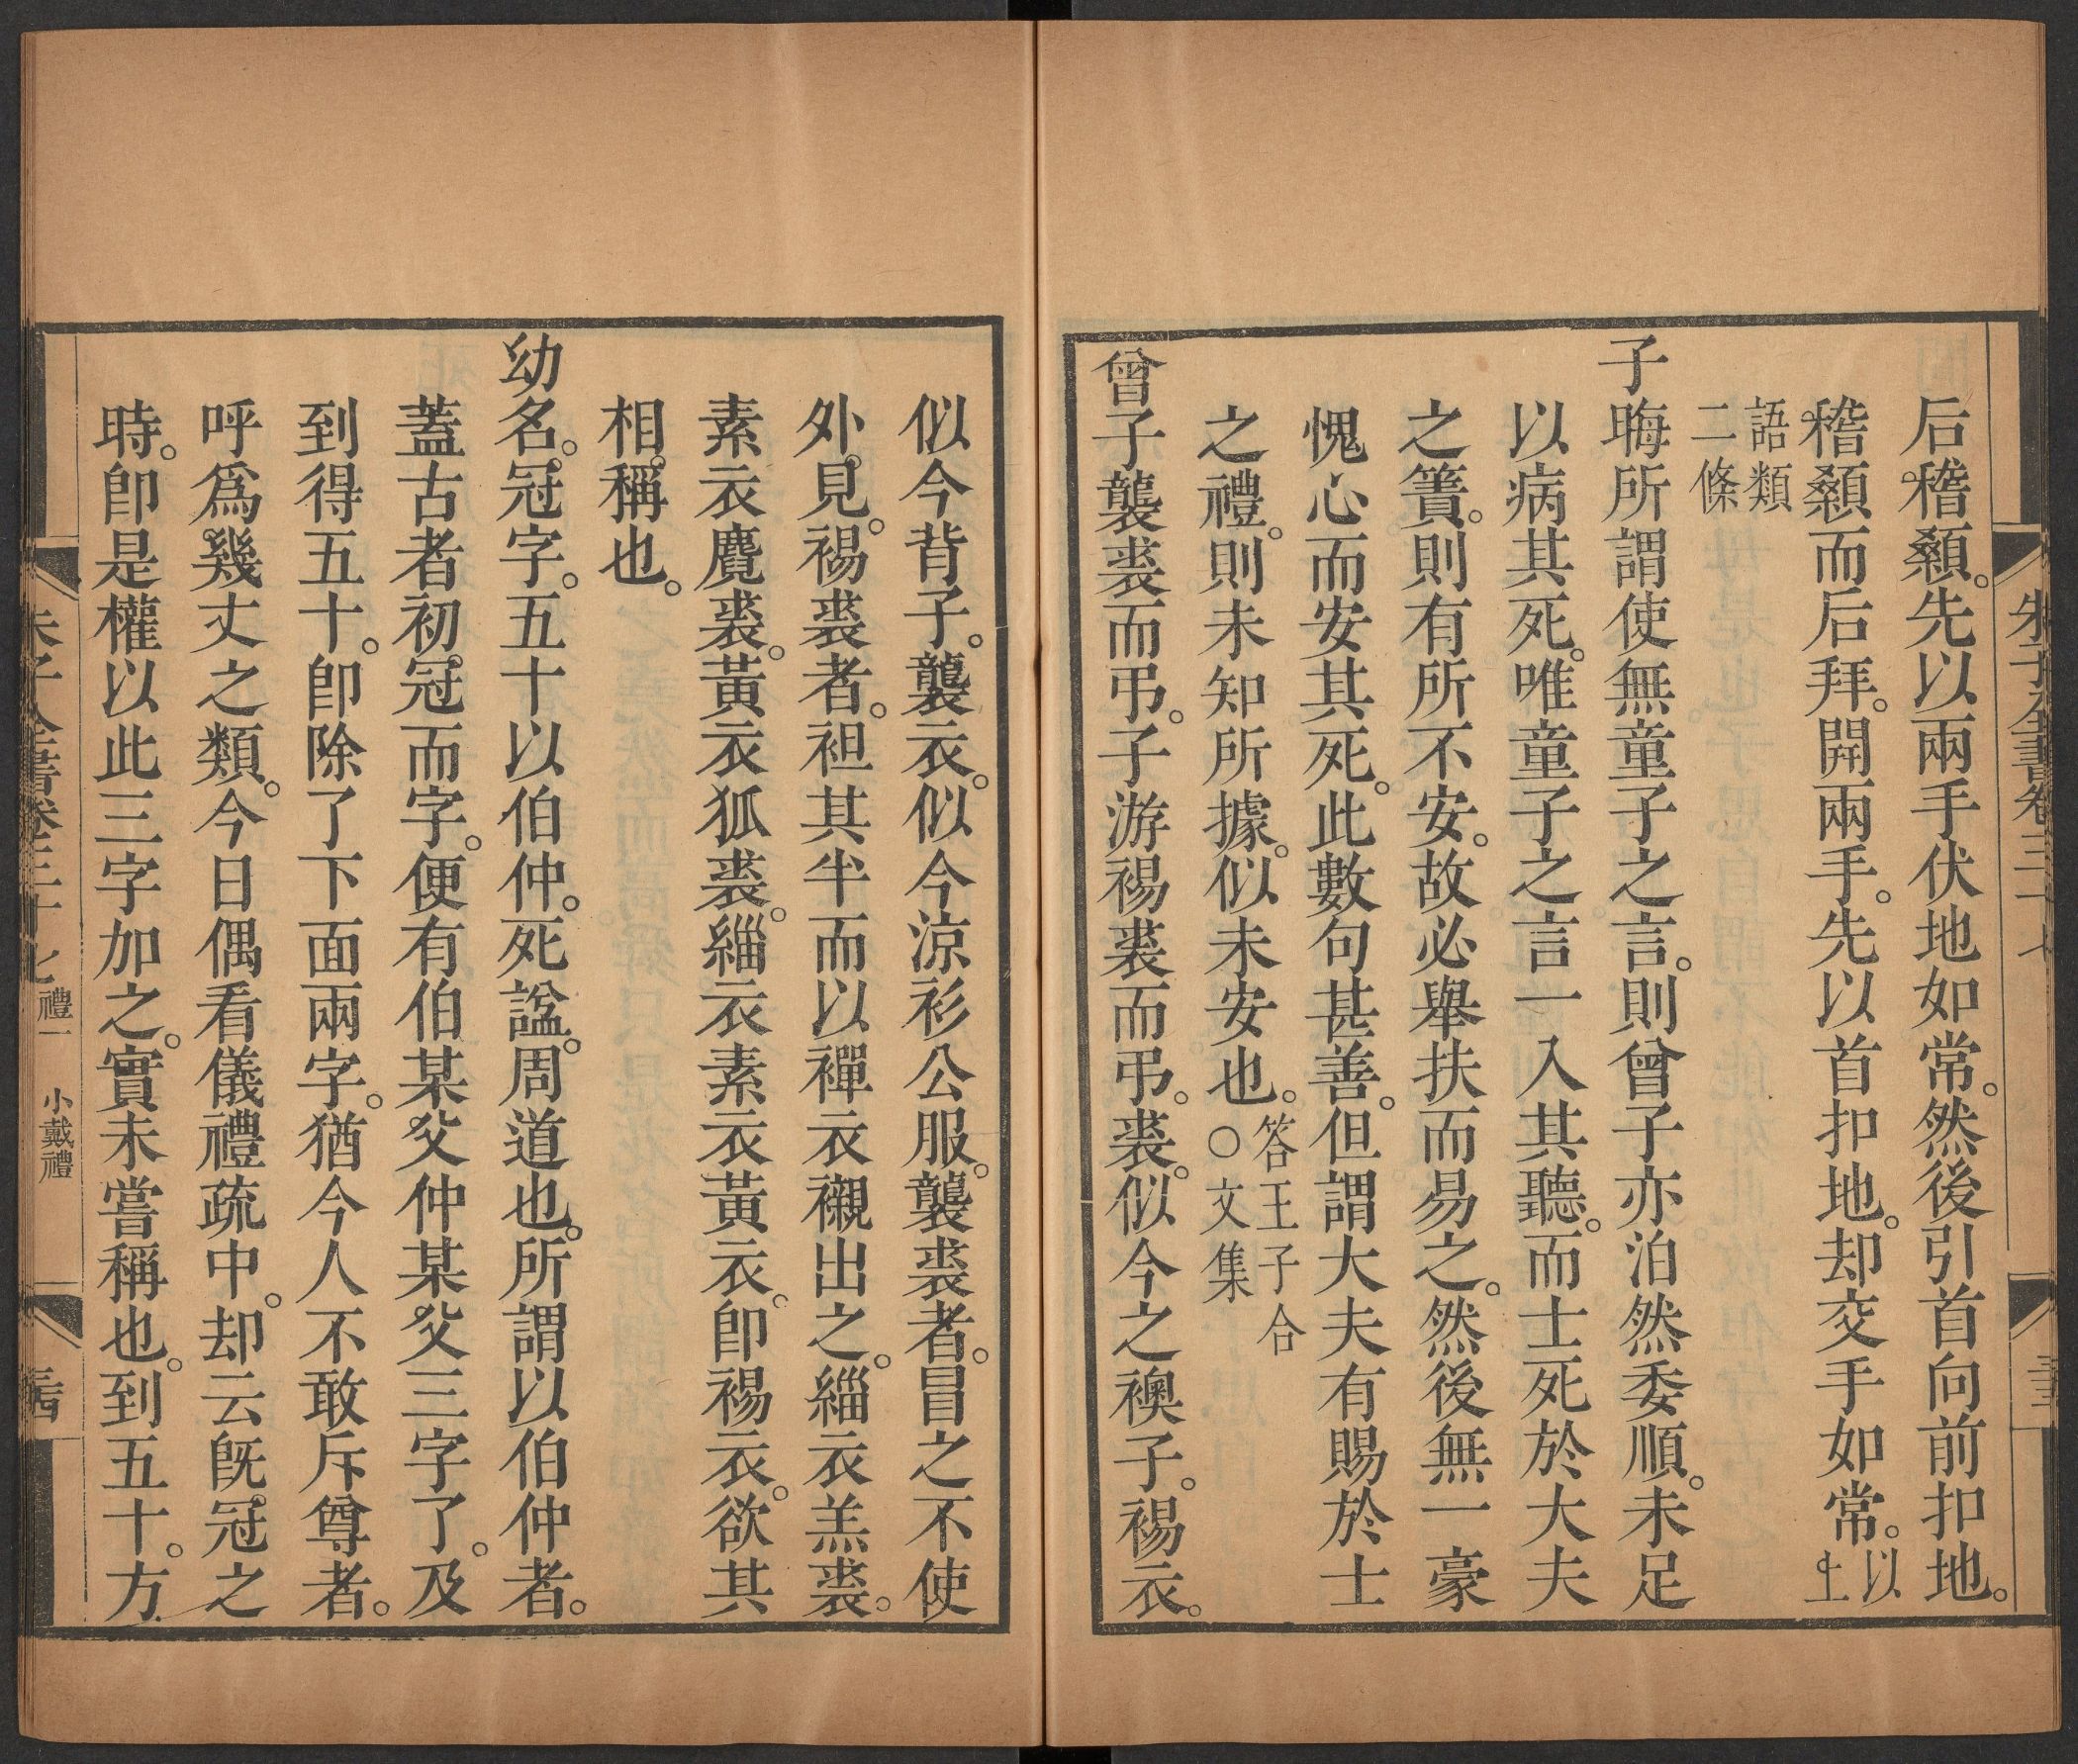 朱子全書卷三十七
后稽顙。先以兩手伏地如常。然後引首向前扣地。
稽顙而后拜。開兩手。先以首扣地。却交手如常。以上
語類二條
子晦所謂使無童子之言。則曾子亦泊然委順。未足
以病其死。唯童子之言一入其聽。而士死於大夫
之簀。則有所不安。故必舉扶而易之。然後無一豪
愧心而安其死。此數句甚善。但謂大夫有賜於士
之禮。則未知所據。似未安也。答王子合○文集
曾子襲裘而弔。子游裼裘而弔。裘。似今之襖子。裼衣。
似今背子。襲衣。似今涼衫公服。襲裘者。冒之不使
外見。裼裘者。袒其半而以襌衣襯出之。緇衣羔裘。
素衣麑裘。黃衣狐裘。緇衣素衣黃衣。卽裼衣。欲其
相稱也。
幼名。冠字。五十以伯仲。死諡。周道也。所謂以伯仲者。
蓋古者初冠而字。便有伯某父仲某父三字了。及
到得五十。卽除了下面兩字。猶今人不敢斥尊者。
呼爲幾丈之類。今日偶看儀禮疏中。却云旣冠之
時。卽是權以此三字加之。實未嘗稱也。到五十。方
朱子全書卷三十七 禮一 小戴禮